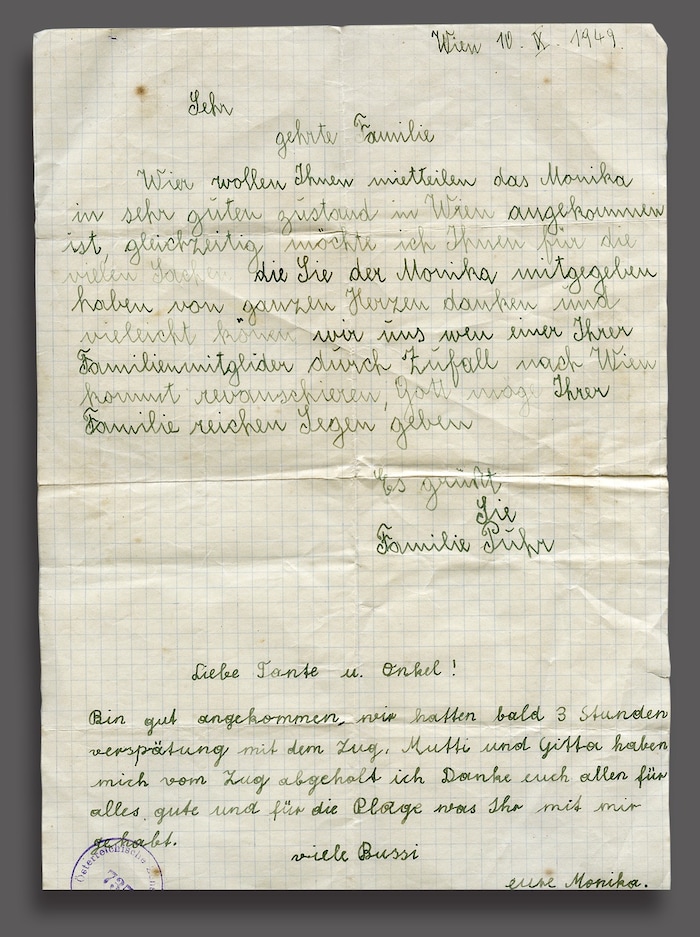 Wien 10. X. 1949.
Sehr
gehrte Familie
Wier wollen Ihnen mietteilen das Monika
in sehr guten zustand in Wien angekommen
ist, gleichzeitig möchte ich Ihnen für die
vielen Sachen die Sie der Monika mitgegeben
haben von ganzen Herzen danken und
vieleicht könen wir uns wen einer Ihrer
Familienmitglider durch Zufall nach Wien
kommt revanschieren, Gott möge Ihrer
Familie reichen Segen geben
Es grüßt
Sie
Familie Puhr
Liebe Tante u. Onkel!
Bin gut angekommen, wir hatten bald 3 Stunden
verspätung mit dem Zug. Mutti und Gitta haben
mich vom Zug abgeholt ich Danke euch allen für
alles gute und für die Plage was Ihr mit mir
gehabt.
viele Bussi
eure Monika.
Österreichische